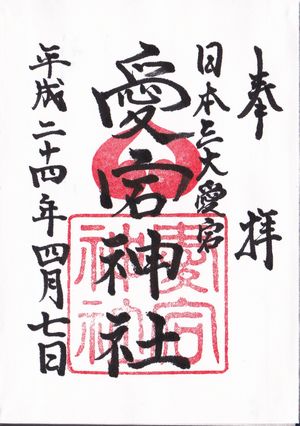 奉拝
日本三大愛宕
愛宕神社
平成二十四年四月七日
愛宕神社